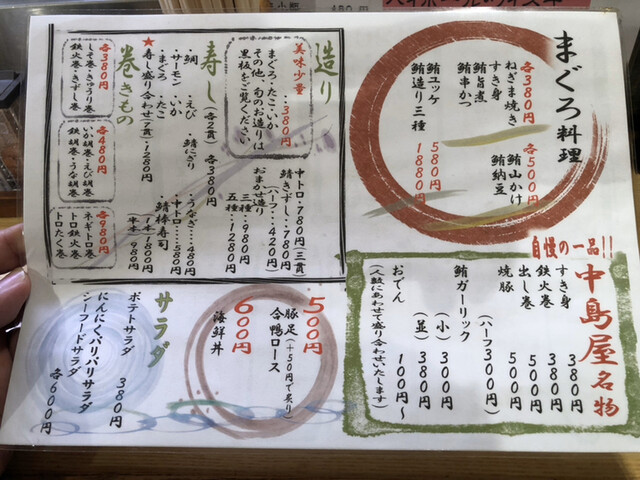 まぐろ料理
各380円
ねぎま焼き
すき身
鮪旨煮
鮪串かつ
各500円
鮪山かけ
鮪納豆
鮪ユッケ 580円
鮪造り三種 1880円
造り
美味少量
・・・380円
まぐろ・たこ・いか
その他、旬のお造りは
黒板をご覧ください
中トロ・780円(三貫)
鮪きずし・780円
(ハーフ・420円)
おまかせ造り
三種・980円
五種・1280円
寿し(各2貫)各380円
・鯛 ・えび ・鯖にぎり
・サーモン ・いか
・まぐろ ・たこ
★寿し盛り合わせ(7貫)・1280円
・うなぎ・・480円
・中トロ・・580円
・鯖棒寿司
1本 1800円
半本 980円
巻きもの
各380円
しそ巻・きゅうり巻
鉄火巻・きずし巻
各480円
いか胡巻・えび胡巻
鉄胡巻・うな胡巻
各980円
ネギトロ巻
トロ鉄火巻
トロたく巻
自慢の一品!!
中島屋名物
すき身 380円
鉄火巻 380円
出し巻 500円
焼豚 500円
(ハーフ300円)
鮪ガーリック
(小) 300円
(並) 380円
おでん 100円〜
(人数にあわせて盛り合わせいたします)
500円
豚足(+50円で炙り)
合鴨ロース
600円
海鮮丼
サラダ
ポテトサラダ 380円
にんにくパリパリサラダ
シーフードサラダ
各600円